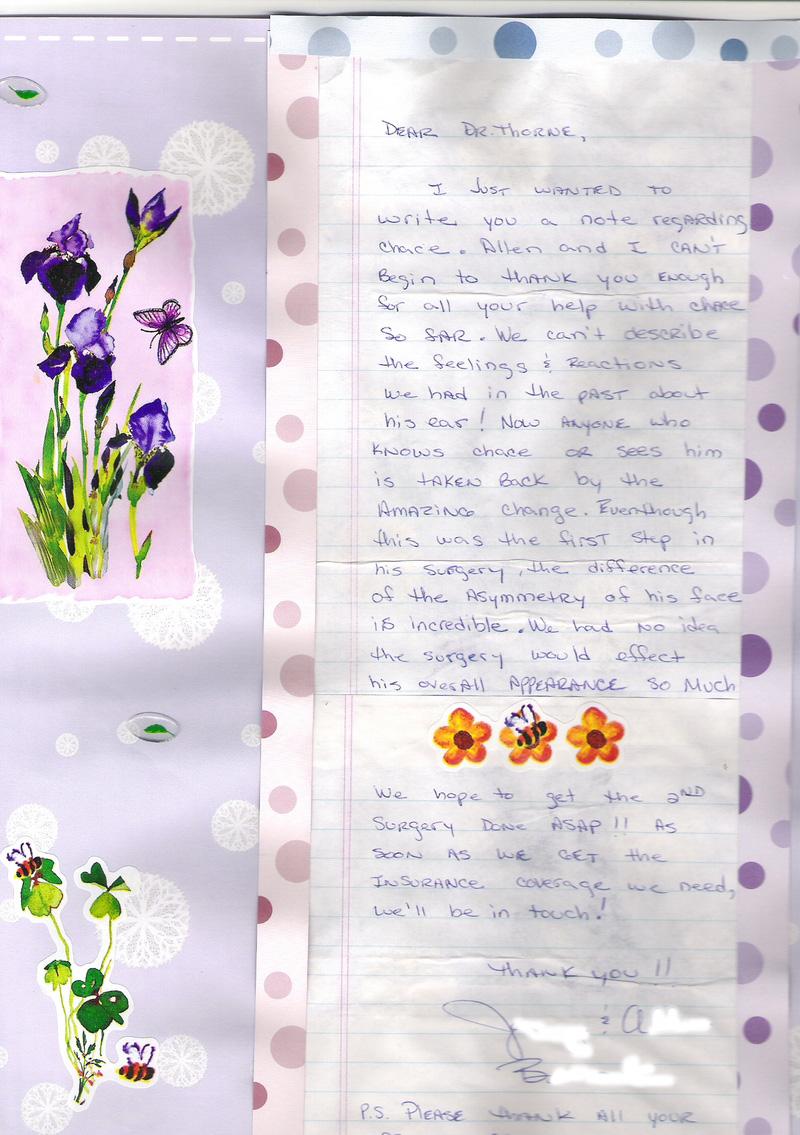 DEAR DR. THORNE,
I JUST WANTED TO
write you a note regARDING
chace. Allen and I CAN'T
Begin to thANK you ENOUgh
for all your help with chace
SO fAR. We can't describe
the feelings & REACTIONS
we hAD in the pAST about
his ear! NOW ANYONE who
KNOWS chace OR SEES him
is tAKEN BACK by the
AMAZING change. Eventhough
this was the first step in
his surgery, the difference
of the ASYMMETRY of his face
is incredible. We had NO idea
the surgery would effect
his overAll APPEARANCE SO Much
We hope to get the 2ND
SURGERY DONE ASAP!! AS
SOON AS WE GET the
INSURANCE coverage we need,
we'll be in touch!
THANK YOU!!
&
P.S. PLEASE thANK All YOUR